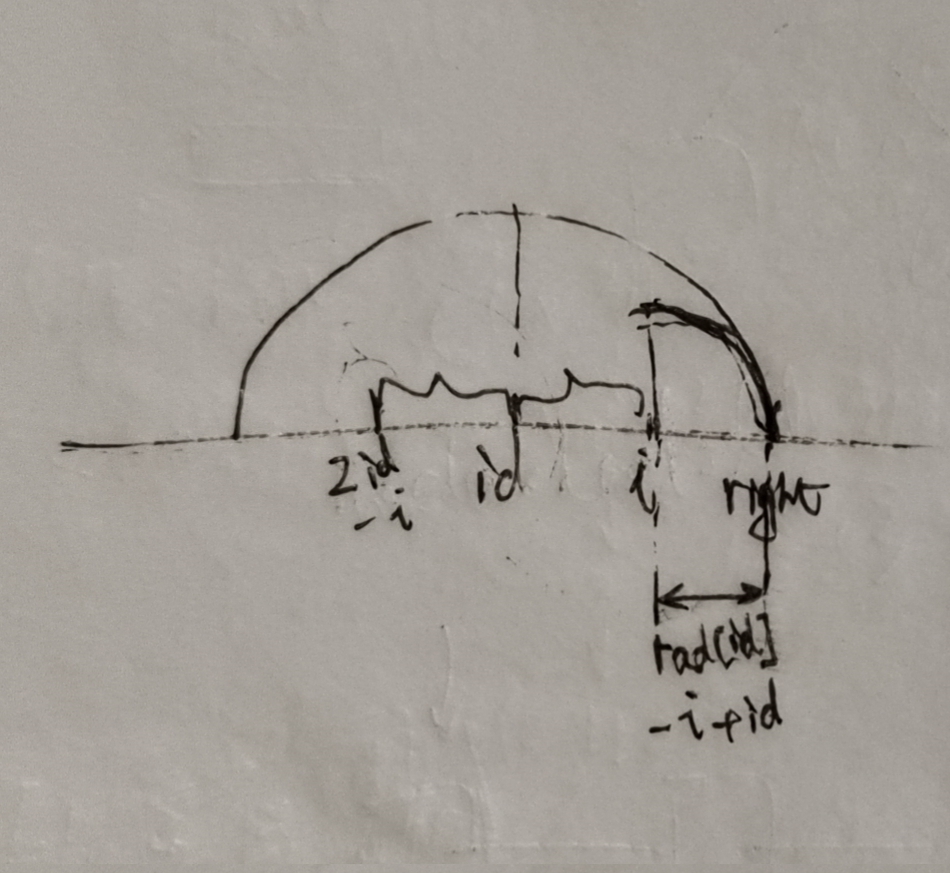 2id
-i
id
i
right
rad[id]
-i+id